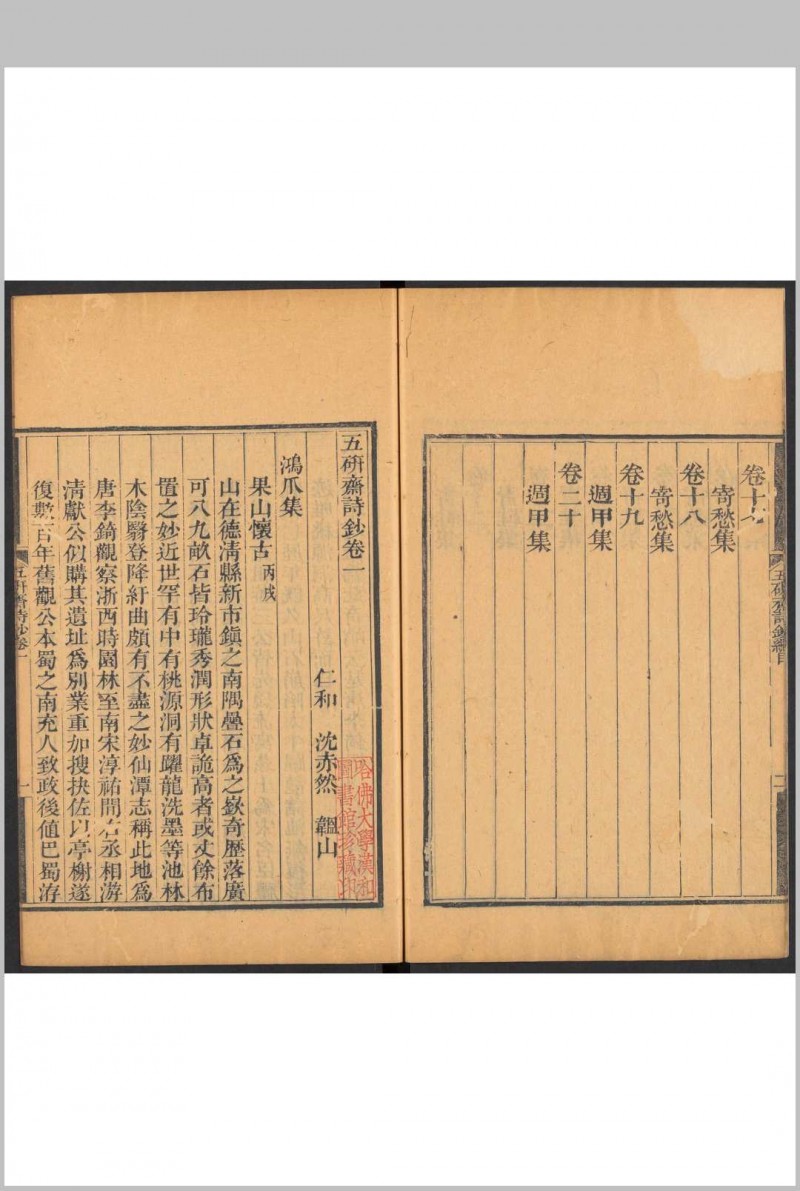 卷十七
寄愁集
卷十八
寄愁集
卷十九
週甲集
卷二十
週甲集
五硏齋詩鈔總目
五硏齋詩鈔卷一
仁和 沈赤然 韞山
鴻爪集
果山懷古丙戌
山在德清縣新市鎮之南隅疊石爲之嶔奇歷落廣
可八九畝石皆玲瓏秀潤形狀卓詭高者或丈餘布
置之妙近世罕有中有桃源洞有躍龍洗墨等池林
木陰翳登降紆曲頗有不盡之妙仙潭志稱此地爲
唐李錡觀察浙西時園林至南宋淳祐間右丞相游
清獻公似購其遺址爲別業重加搜抉佐以亭榭遂
復數百年舊觀公本蜀之南充人致政後值巴蜀洊
五硏齋詩鈔卷一
一
哈佛大學漢和
圖書館珍藏印